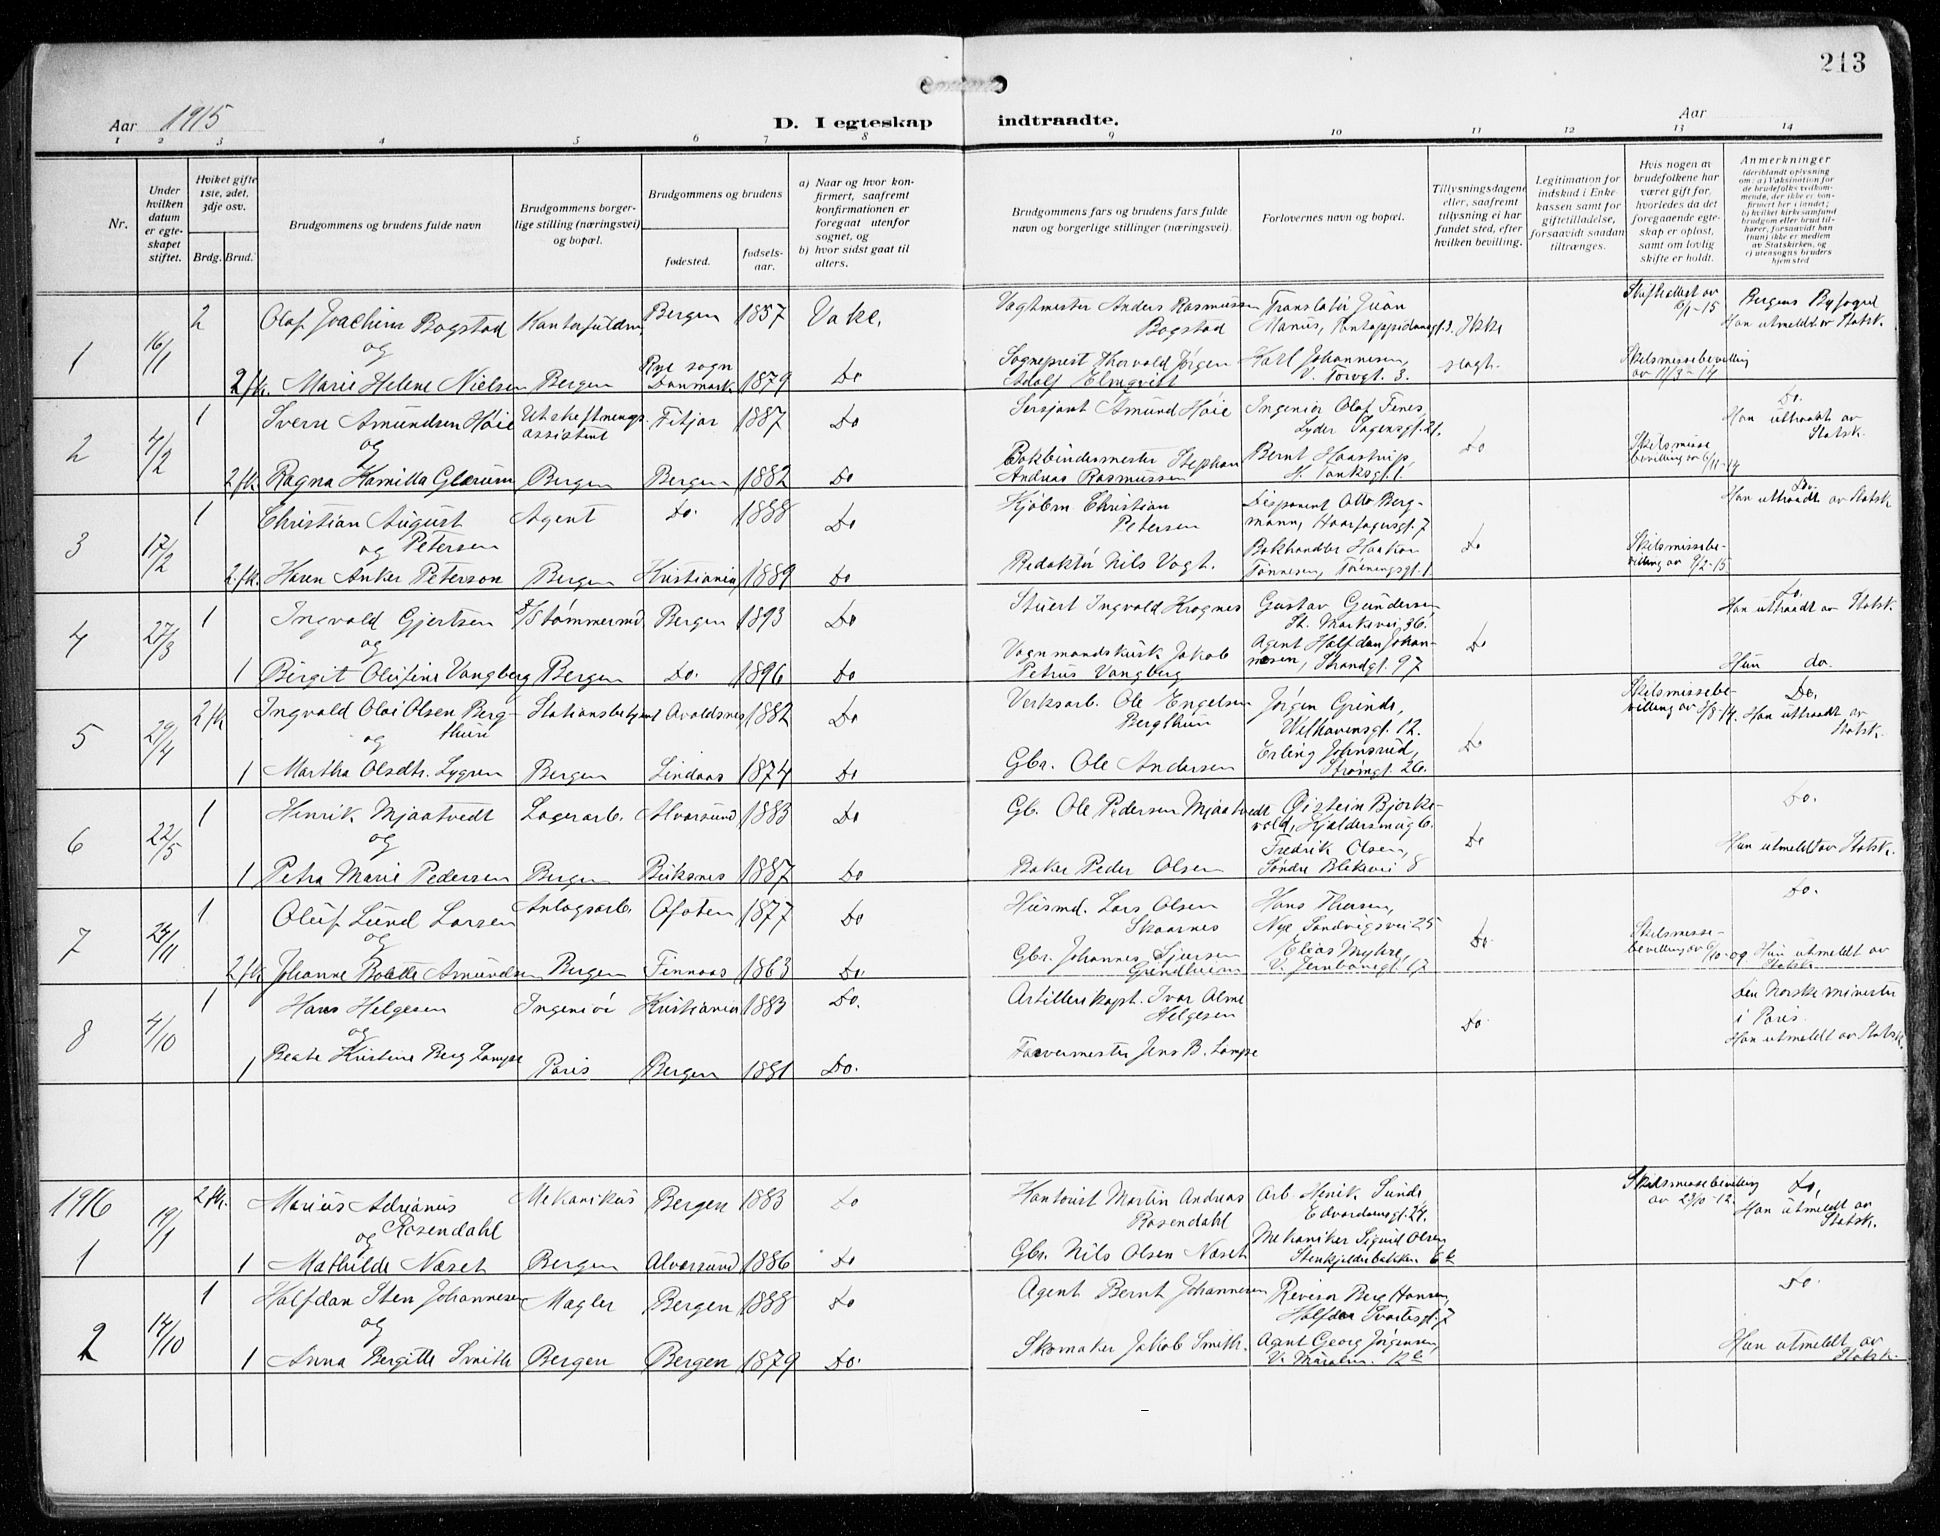 213
Aar 1915
D. I egteskap indtraadte.
Aar
1 2 3 4 5 6 7 8 9 10 11 12 13 14
Nr.
Under hvilken datum er egteskapet stiftet.
Hviket gifte 1ste, 2det, 3dje osv.
Brdg. Brud.
Brudgommens og brudens fulde navn
Brudgommens borgerlige stilling (næringsvei) og bopæl.
Brudgommens og brudens
fødested.
fødselsaar.
a) Naar og hvor konfirmert, saafremt konfirmationen er foregaat utenfor sognet, og
b) hvor sidst gaat til alters.
Brudgommens fars og brudens fars fulde navn og borgerlige stillinger (næringsvei).
Forlovernes navn og bopæl.
Tillysningsdagene eller, saafremt tillysning ei har fundet sted, efter hvilken bevilling.
Legitimation for indskud i Enkekassen samt for giftetilladelse, forsaavidt saadan tiltrænges.
Hvis nogen av brudefolkene har været gift før, hvorledes da det foregaaende egteskap er opløst, samt om lovlig skifte er holdt.
Anmerkninger (deriblandt oplysning om: a) Vaksination for de brudefolks vedkommende, der ikke er konfirmert her i landet; b) hvilket kirkesamfund brudgom eller brud tilhører, forsaavidt han (hun) ikke er medlem av Statskirken, og c) utensogns bruders hjemsted
1 16/1 2 Olaf Joachim Bogstad Bergen 1857 Vake. Vagtmester Anders Rasmussen Bogstad Translatør Juan Ikke Skifteattest av Bergens Byfoged
Han utmeldt av Statsk.
og
2 fr. Marie Helene Nielsen Bergen Rye sogn Danmark 1879 Do Sogneprest Thorvald Jørgen Adolf Elmqvitt Karl Johannesen, V. Torvgt. 3. Skilsmissebevilling av 11/3-14
2 4/2 1 Sverre Amundsen Høie Utskiftningsassistent Fitjar 1887 Do Sersjant Amund Høie Ingeniør Olaf Fenes, Lyder Sagensgt. 21. Do
Do. Han uttraadt av Statsk.
og
2 fr. Ragna Kamilla Glærum Bergen Bergen 1882 Do Bokbindermester Stephan Andreas Rasmussen Bernt Haastrup, H. Tanksgt. 1. Skilsmissebevilling av 6/11-14
3 17/2 1 Christian August Petersen Agent Do. 1888 Do Kjøbm Christian Petersen Disponent Otto Bergmann, Haarfagersgt. 7 Do
Do. Han uttraadt av Statsk
og
2. fr. Karen Anker Peterson Bergen Kristiania 1889 Do Redaktør Nils Vogt. Bokhandler Haakon Tønnesen, Foreningsgt. 1. Skilsmissebevilling av 9/2-15
4 27/3 1 Ingvald Gjertsen Bergen 1893 Do Stuert Ingvald Krognes Gustav Gundersen St. Marksvei 36. Do
Do. Han uttraadt av Statsk
og
1 Birgit Olufine Vangberg Bergen Do. 1896 Do Vognmandskusk Jakob Petrus Vangberg Agent Halfdan Johannesen, Strandgt. 97 Hun do.
5 29/4 2 fr Ingvald Olai Olsen Bergthun Stationsbetjent Avaldsnes 1882 Do Verksarb. Ole Engelsen Bergthun Jørgen Grinde, Welhavensgt. 12. Do Skilsmissebevilling av 5/8-14.
Do. Han uttraadt av Statsk.
og
1 Martha Olsdtr. Lygren Bergen Lindaas 1874 Do Gbr. Ole Andersen Erling Johnsrud, Strømgt. 26.
6 22/5 1 Henrik Mjaatvedt Lagerarb. Alversund 1883 Do Gb. Ole Pedersen Mjaatvedt Øistein Bjorkevold, Kjeldersmug 6. Do Do.
og
1 Petra Marie Pedersen Bergen Buksnes 1887 Do Baker Peder Olsen Fredrik Olsen, Søndre Blekevei 8 Hun utmeldt av Statsk.
7 23/11 1 Oluf Lund Larsen Anlagsarb. Ofoten 1877 Do Husmd. Lars Olsen Skaarnes Hans Thersen, Nye Sandvigsvei 25 Do Do.
og
2 fr Johanne Bolette Amundsen Bergen Finnaas 1863 Do. Gbr. Johannes Sjursen Grindheim Elias Myhre, V. Jernbanegt. 17 Skilsmissebevilling av 6/10-09 Hun utmeldt av Statsk.
8 4/10 1 Hans Helgesen Ingeniør Kristiania 1883 Do. Artillerikapt. Ivar Alme Helgesen Do.
Den Norske minister i Paris.
Han utmeldt av Statsk.
og
1 Beate Kristine Berg Lampe Paris Bergen 1881 Do. Farvermester Jens B. Lampe
1916
1 19/1 2 fr. Marius Adrianus Rosendahl Mekanikus Bergen 1883 Do Kantorist Martin Andreas Rosendahl Arb. Henrik Sunde, Edvardsensgt. 24. Skilsmissebevilling av 23/10-12.
Do, Han utmeldt av Statsk.
og
1 Mathilde Næset Bergen Alversund 1886 Do Gbr. Nils Olsen Næset Mekaniker Sigurd Olsen Stenkjelderbakken 6b
2 14/10 1 Halfdan Sten Johannesen Magler Bergen 1888 Do Agent Bernt Johannesen Revisor Berg Hansen, Halfdan Svartesgt. 7 Do.
og
1 Anna Bergitte Smith Bergen Bergen 1879 Do. Skomaker Jakob Smith. Agent Georg Jørgensen, Hun utmeldt av Statsk.